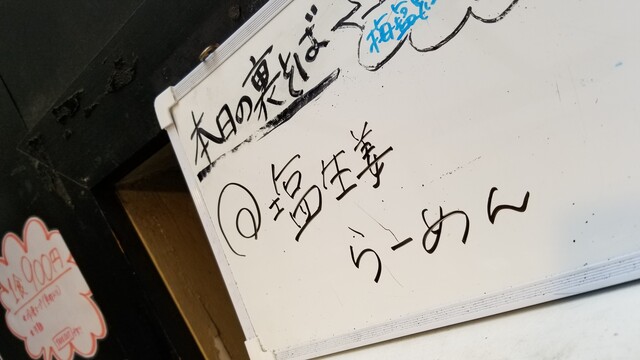 本日の裏そば
@塩生姜
らーめん
900円